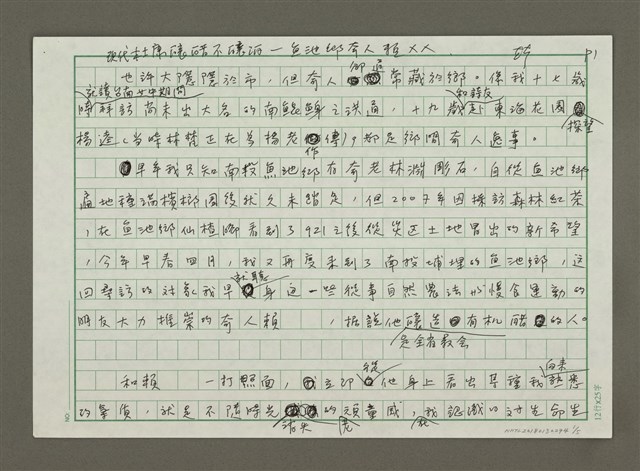 現代杜康釀醋不釀酒—魚池鄉奇人賴XX P1
也許大隱隱於市,但奇人卻還常藏於鄉。像我十七歲
就讀台南女中期間 和詩友
時拜訪尚未出大名的南鯤鯓之洪通,十九歲赴東海花園探望
楊逵(當時林梵正在為楊老作傳),都是鄉間奇人逸事。
早年我只知南投魚池鄉有奇老林淵雕石,自從魚池鄉
遍地種滿檳榔園後就久未踏足,但2007年因採訪森林紅茶
,在魚池鄉仙楂腳看到了921之後從災區土地冒出的新希望
,今年早春四月,我又再度來到了南投埔里的魚池鄉,這
回尋訪的對象我早就聽身邊一些從事自然農法的慢食運動的
朋友大力推崇的奇人賴 ,據說他釀造 有机醋 的人。
是全省教会
和賴 一打照面,立即從他身上看出某種我向來熟悉
的氣質,就是不隨時光消失的頑童感,我認識的
12行x25字
NO.